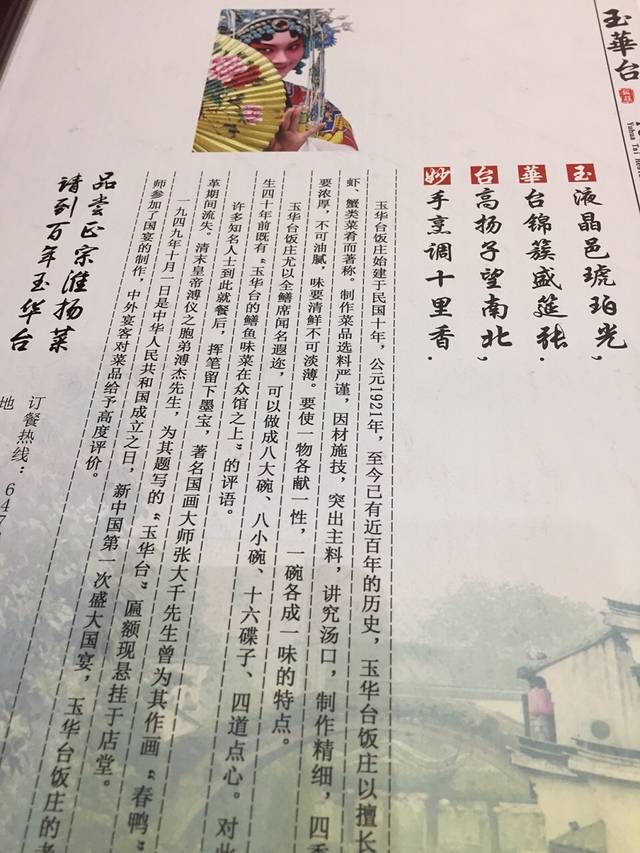 玉華台
Yuhua Tai
玉液晶邑琥珀光，
華台锦簇盛筵张．
台高扬子望南北，
妙手烹调十里香．
玉华台饭庄始建于民国十年，公元1921年，至今已有近百年的历史，玉华台饭庄以擅长
虾、蟹类菜肴而著称。制作菜品选料严谨，因材施技，突出主料，讲究汤口，制作精细，四季
要浓厚，不可油腻，味要清鲜不可淡薄。要使一物各献一性，一碗各成一味的特点。
玉华台饭庄尤以全鳝席闻名遐迩，可以做成八大碗、八小碗、十六碟子、四道点心。对此
生四十年前既有“玉华台的鳝鱼味菜在众馆之上”的评语。
许多知名人士到此就餐后，挥笔留下墨宝，著名国画大师张大千先生曾为其作画“春鸭”
革期间流失。清末皇帝溥仪之胞弟溥杰先生，为其题写的“玉华台”匾额现悬挂于店堂。
一九四九年十月一日是中华人民共和国成立之日，新中国第一次盛大国宴，玉华台饭庄的老
师参加了国宴的制作，中外宴客对菜品给予高度评价。
品尝正宗淮扬菜
请到百年玉华台
订餐热线：647
地